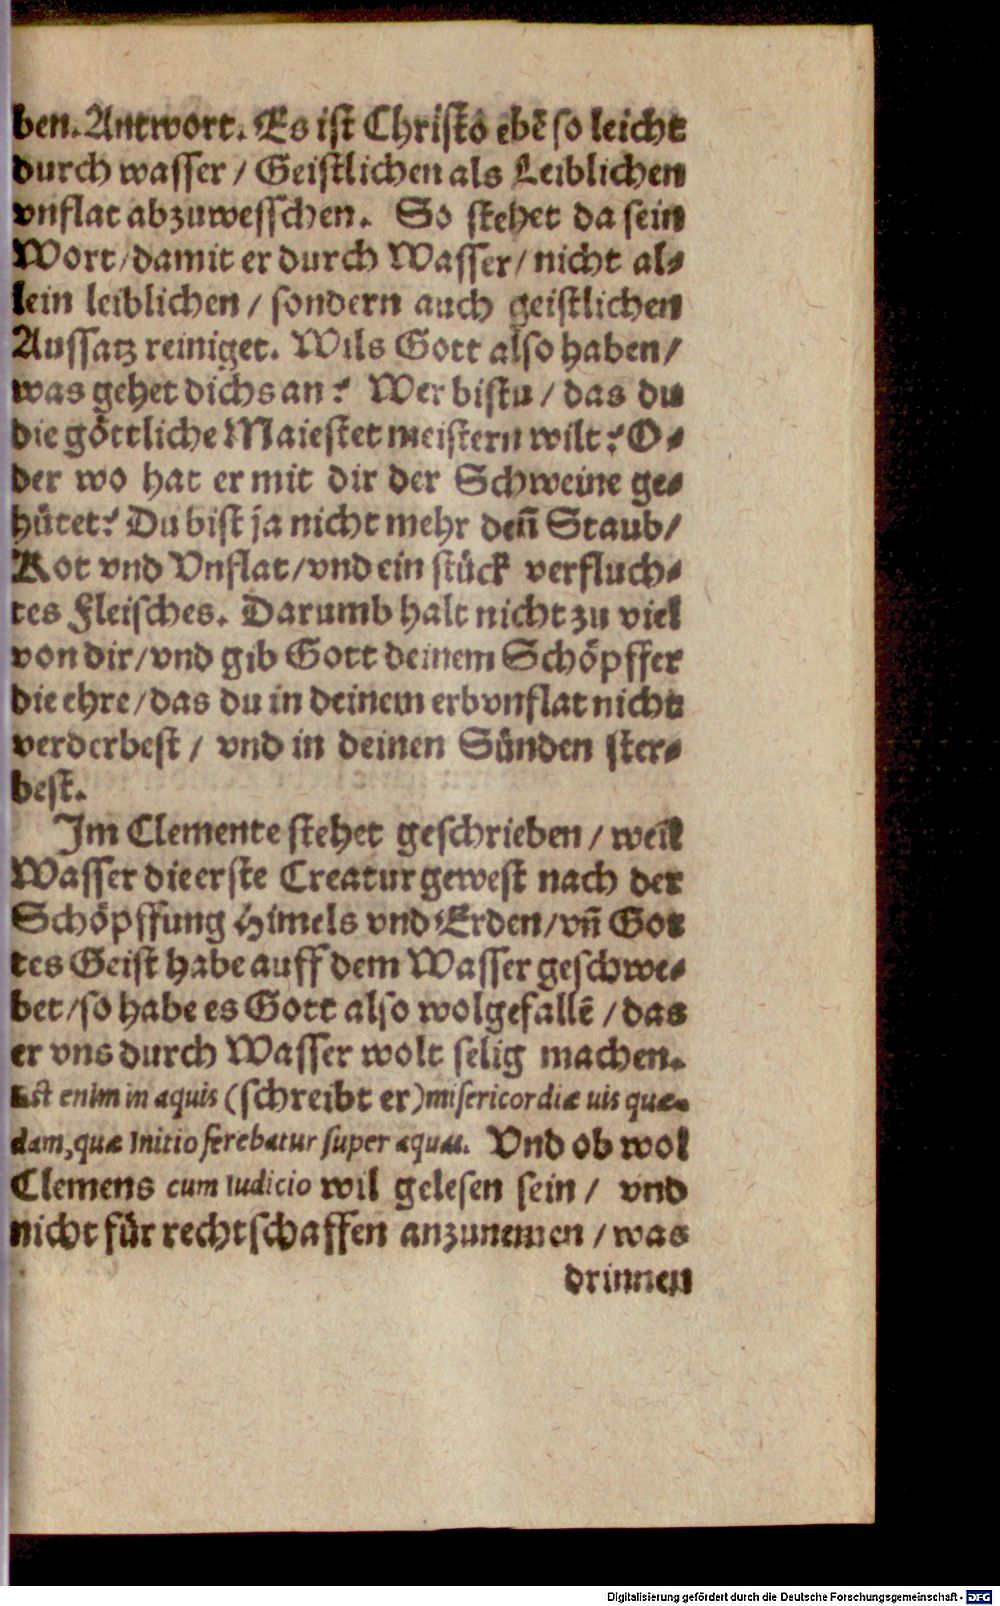 ben. Antwort. Es ist Christo ebē so leicht
durch wasser / Geistlichen als Leiblichen
vnflat abzuwesschen. So stehet da sein
Wort / damit er durch Wasser / nicht al⸗
lein leiblichen / sondern auch geistlichen
Aussatz reiniget. Wils Gott also haben /
was gehet dichs an? Wer bistu / das du
die göttliche Maiestet meistern wilt? O⸗
der wo hat er mit dir der Schweine ge⸗
hütet? Du bist ja nicht mehr deñ Staub /
Kot vnd Vnflat / vnd ein stück verfluch⸗
tes Fleisches. Darumb halt nicht zu viel
von dir / vnd gib Gott deinem Schöpffer
die ehre / das du in deinem erbvnflat nicht
verderbest / vnd in deinen Sünden ster⸗
best.
Im Clemente stehet geschrieben / weil
Wasser die erste Creatur gewest nach der
Schöpffung Himels vnd Erden / vñ Got
tes Geist habe auff dem Wasser geschwe⸗
bet / so habe es Gott also wolgefallē / das
er vns durch Wasser wolt selig machen.
Est enim in aquis (schreibt er) misericordiæ uis quæ⸗
dam, quæ Initio ferebatur super aquas. Vnd ob wol
Clemens cum Iudicio wil gelesen sein / vnd
nicht für rechtschaffen anzunemen / was
drinnen
Digitalisierung gefördert durch die Deutsche Forschungsgemeinschaft - DFG